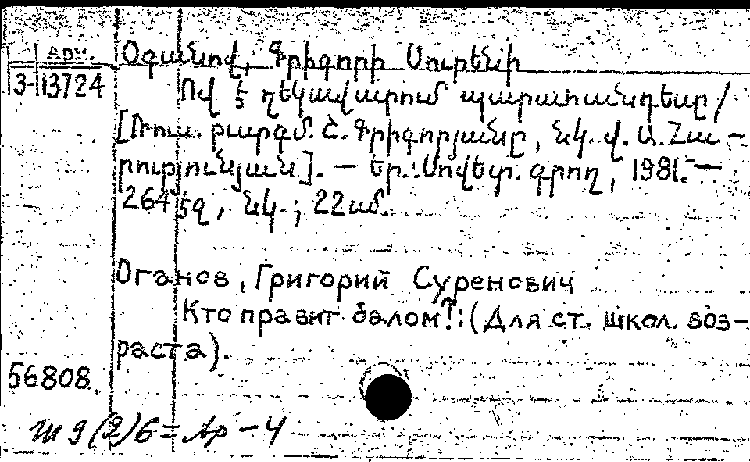 арм.
3-13724
Օգանով, Գրիգորի Սուրենի
Ով է ղեկավարում պարահանդեսը /
[Ռուս. բարգմ. Շ. Գրիգորյանը, նկ. Վ. Ա. Հա-
րությունյան]. — Եր.: Սովետ. գրող, 1981. —
264 էջ, նկ.; 22 սմ.
Оганов, Григорий Суренович
Кто правит балом?: (Для ст. школ. воз-
раста).
56808.